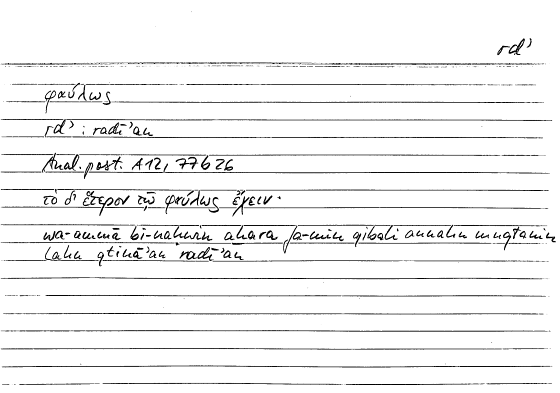 rdʾ
φαύλως
rdʾ : radīʾan
Anal. post. A12, 77b26
τὸ δ' ἕτερον τῷ φαύλως ἔχειν·
wa-ammā bi-naḥwin āḫara fa-min qibali annahu muqtanin
lahu qtināʾan radīʾan